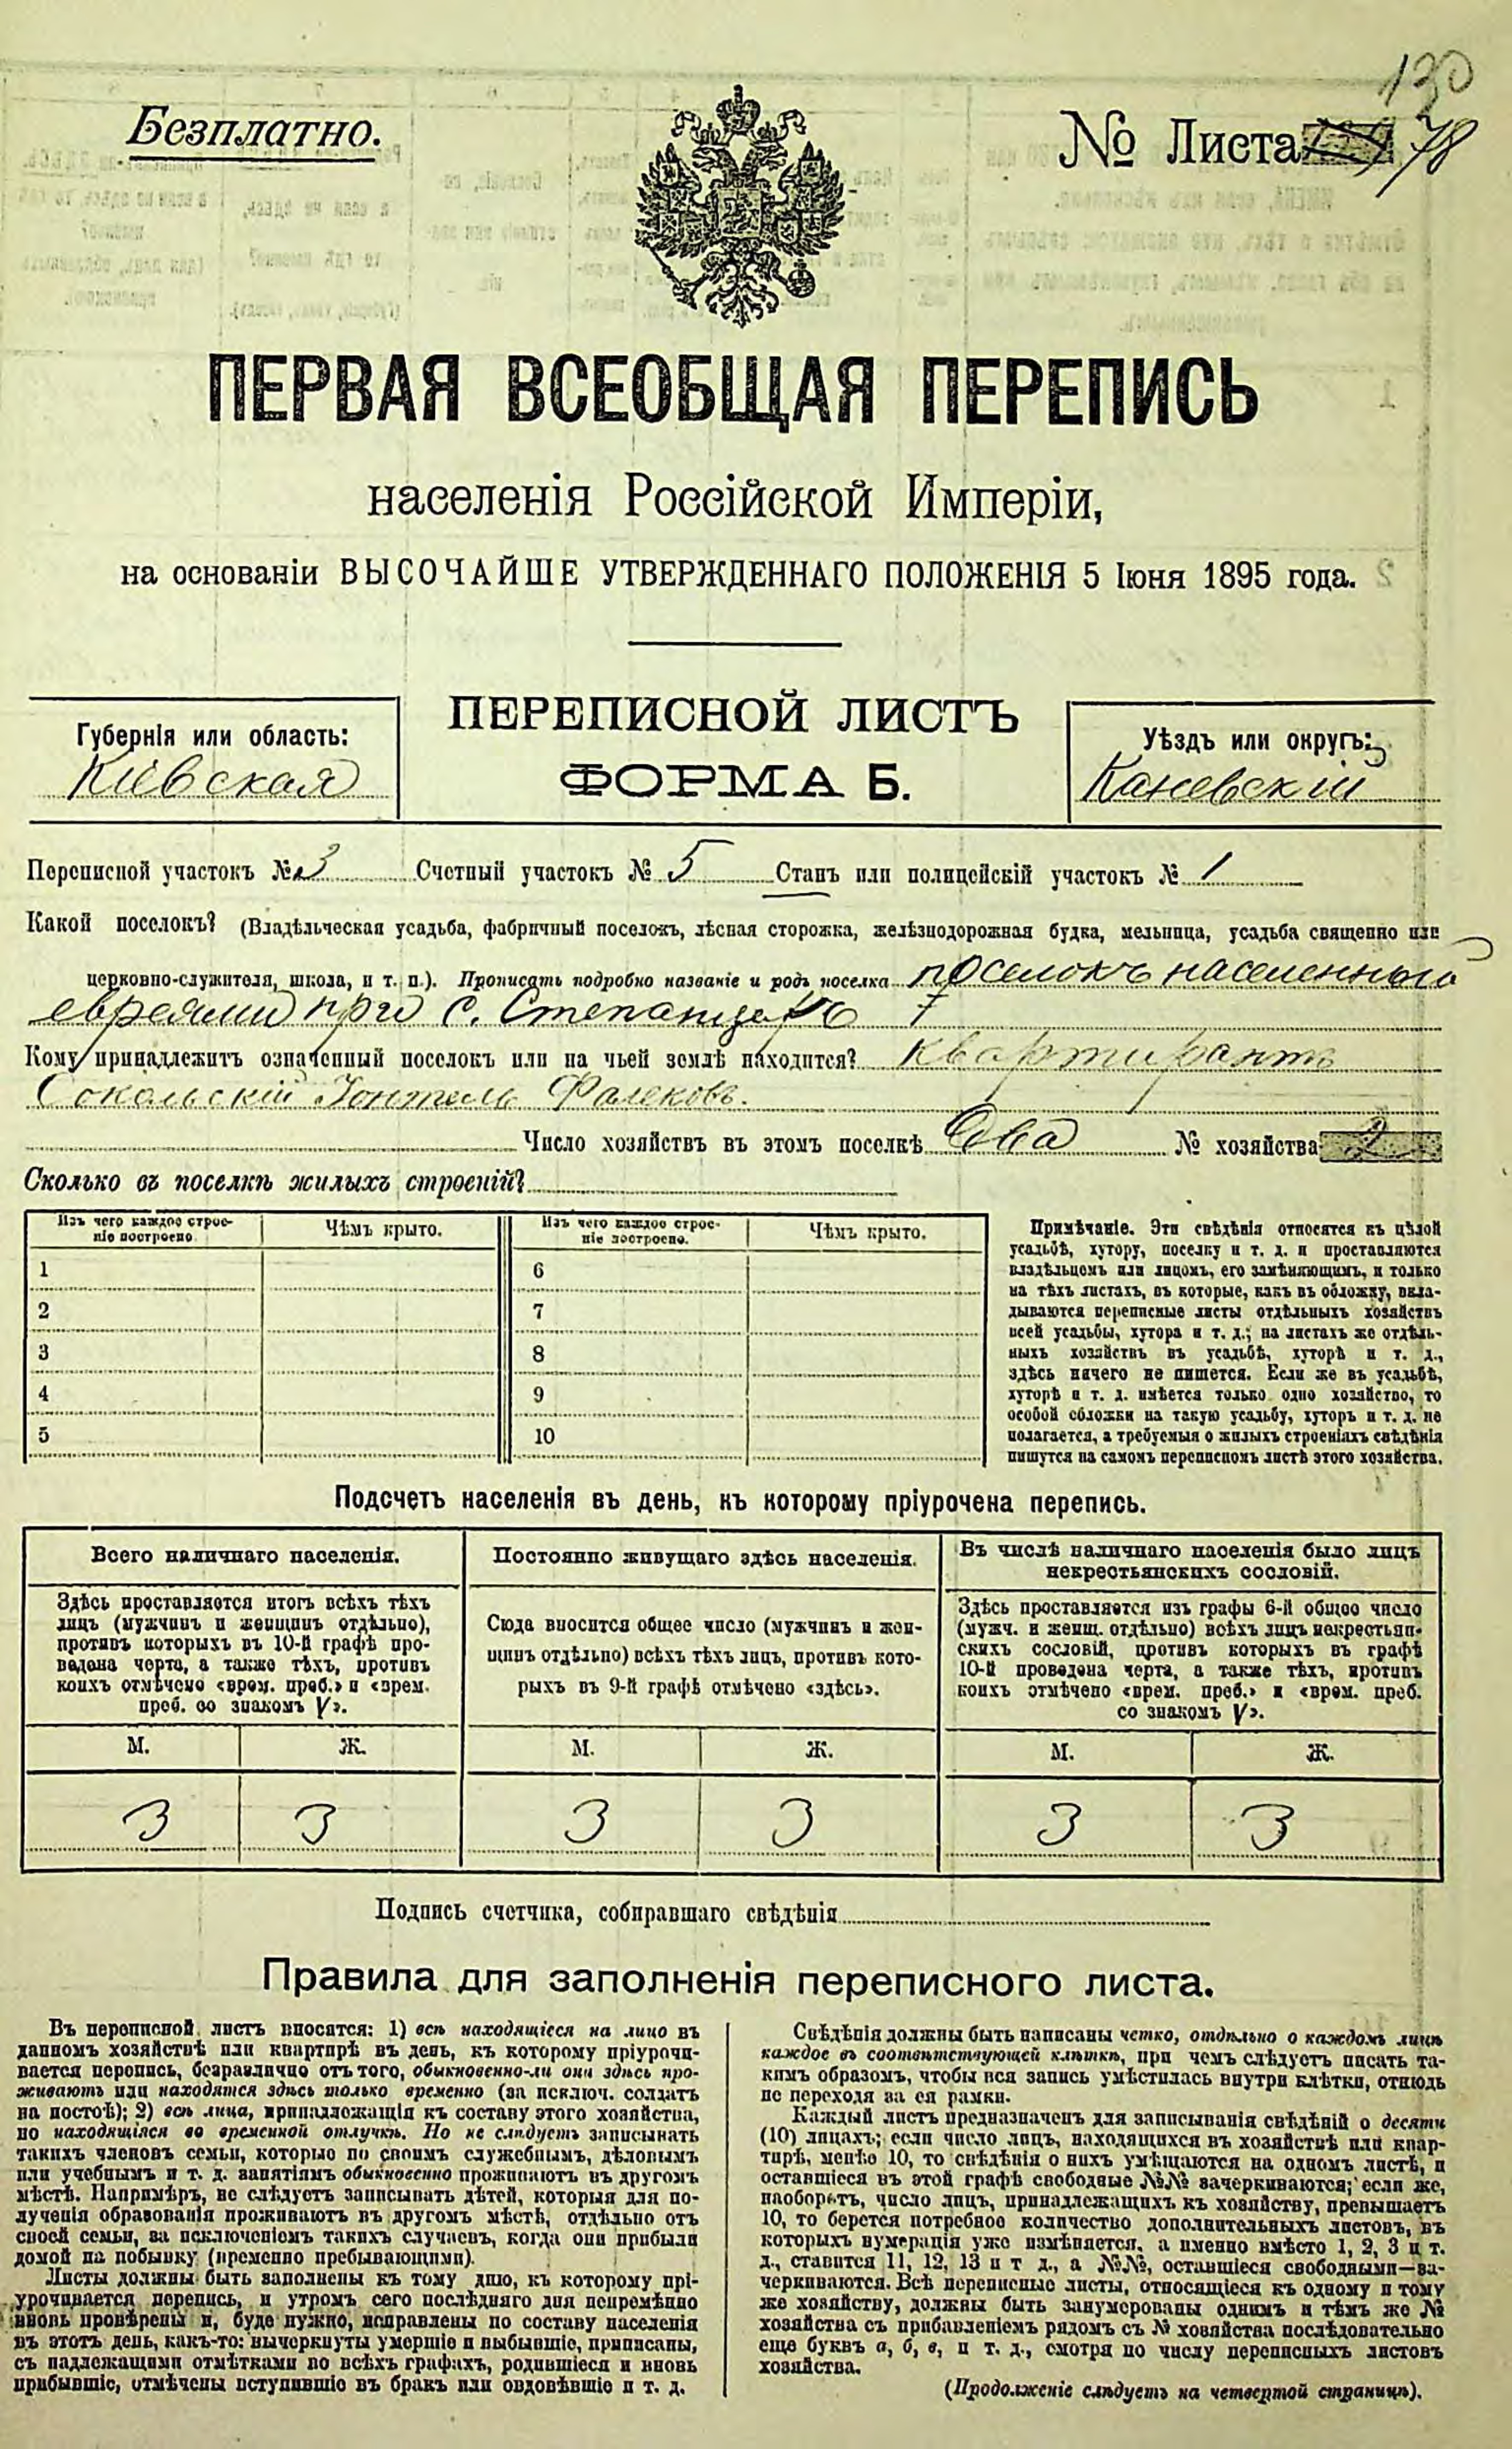 130
Безплатно.
№ Листа 78
ПЕРВАЯ ВСЕОБЩАЯ ПЕРЕПИСЬ
населенія Россійской Имперіи,
на основаніи ВЫСОЧАЙШЕ УТВЕРЖДЕННАГО ПОЛОЖЕНІЯ 5 Іюня 1895 года.
ПЕРЕПИСНОЙ ЛИСТЪ
ФОРМА Б.
Губернія или область:
Кіевская
Уѣздъ или округъ:
Каневскій
Переписной участокъ № 3 Счетный участокъ № 5 Станъ или полицейскій участокъ № 1
Какой поселокъ? (Владѣльческая усадьба, фабричный поселокъ, лѣсная сторожка, желѣзнодорожная будка, мельница, усадьба священно или
церковно-служителя, школа, и т. п.). Прописать подробно названіе и родъ поселка поселокъ населенный
евреями при с. Степанцахъ
Кому принадлежитъ означенный поселокъ или на чьей землѣ находится? квартирантъ
Сокольскій Фалековъ.
Число хозяйствъ въ этомъ поселкѣ Два № хозяйства 2
Сколько въ поселкѣ жилыхъ строеній?
Изъ чего каждое строе-
ніе построено.
Чѣмъ крыто.
Изъ чего каждое строе-
ніе построено.
Чѣмъ крыто.
1 6
2 7
3 8
4 9
5 10
Примѣчаніе. Эти свѣдѣнія относятся къ цѣлой
усадьбѣ, хутору, поселку и т. д. и проставляются
владѣльцемъ или лицомъ, его замѣняющимъ, и только
на тѣхъ листахъ, въ которые, какъ въ обложку, вкла-
дываются переписные листы отдѣльныхъ хозяйствъ
всей усадьбы, хутора и т. д.; на листахъ же отдѣль-
ныхъ хозяйствъ въ усадьбѣ, хуторѣ и т. д.,
здѣсь ничего не пишется. Если же въ усадьбѣ,
хуторѣ и т. д. имѣется только одно хозяйство, то
особой обложки на такую усадьбу, хуторъ и т. д. не
полагается, а требуемыя о жилыхъ строеніяхъ свѣдѣнія
пишутся на самомъ переписномъ листѣ этого хозяйства.
Подсчетъ населенія въ день, къ которому пріурочена перепись.
Всего наличнаго населенія.
Здѣсь проставляется итогъ всѣхъ тѣхъ
лицъ (мужчинъ и женщинъ отдѣльно),
противъ которыхъ въ 10-й графѣ про-
ведена черта, а также тѣхъ, противъ
коихъ отмѣчено «врем. преб.» и «врем.
преб. со знакомъ V».
М. Ж.
3 3
Постоянно живущаго здѣсь населенія.
Сюда вносится общее число (мужчинъ и жен-
щинъ отдѣльно) всѣхъ тѣхъ лицъ, противъ кото-
рыхъ въ 9-й графѣ отмѣчено «здѣсь».
М. Ж.
3 3
Въ числѣ наличнаго населенія было лицъ
некрестьянскихъ сословій.
Здѣсь проставляется изъ графы 6-й общее число
(мужч. и женщ. отдѣльно) всѣхъ лицъ некрестьян-
скихъ сословій, противъ которыхъ въ графѣ
10-й проведена черта, а также тѣхъ, противъ
коихъ отмѣчено «врем. преб.» и «врем. преб.
со знакомъ V».
М. Ж.
3 3
Подпись счетчика, собиравшаго свѣдѣнія
Правила для заполненія переписного листа.
Въ переписной листъ вносятся: 1) всѣ находящіеся на лицо въ
данномъ хозяйствѣ или квартирѣ въ день, къ которому пріурочи-
вается перепись, безразлично отъ того, обыкновенно-ли они здѣсь про-
живаютъ или находятся здѣсь только временно (за исключ. солдатъ
на постоѣ); 2) всѣ лица, принадлежащія къ составу этого хозяйства,
но находящіяся во временной отлучкѣ. Но не слѣдуетъ записывать
такихъ членовъ семьи, которые по своимъ служебнымъ, дѣловымъ
или учебнымъ и т. д. занятіямъ обыкновенно проживаютъ въ другомъ
мѣстѣ. Напримѣръ, не слѣдуетъ записывать дѣтей, которыя для по-
лученія образованія проживаютъ въ другомъ мѣстѣ, отдѣльно отъ
своей семьи, за исключеніемъ такихъ случаевъ, когда они прибыли
домой на побывку (временно пребывающими).
Листы должны быть заполнены къ тому дню, къ которому прі-
урочивается перепись, и утромъ сего послѣдняго дня непремѣнно
вновь провѣрены и, буде нужно, исправлены по составу населенія
въ этотъ день, какъ-то: вычеркнуты умершіе и выбывшіе, приписаны,
съ надлежащими отмѣтками по всѣхъ графахъ, родившіеся и вновь
прибывшіе, отмѣчены вступившіе въ бракъ или овдовѣвшіе и т. д.
Свѣдѣнія должны быть написаны четко, отдѣльно о каждомъ лицѣ
каждое въ соотвѣтствующей клѣткѣ, при чемъ слѣдуетъ писать та-
кимъ образомъ, чтобы вся запись умѣстилась внутри клѣтки, отнюдь
не переходя за ея рамки.
Каждый листъ предназначенъ для записыванія свѣдѣній о десяти
(10) лицахъ; если число лицъ, находящихся въ хозяйствѣ или квар-
тирѣ, менѣе 10, то свѣдѣнія о нихъ умѣщаются на одномъ листѣ, и
оставшіеся въ этой графѣ свободные №№ зачеркиваются; если же,
наоборотъ, число лицъ, принадлежащихъ къ хозяйству, превышаетъ
10, то берется потребное количество дополнительныхъ листовъ, въ
которыхъ нумерація уже измѣняется, а именно вмѣсто 1, 2, 3 и т.
д., ставится 11, 12, 13 и т д., а №№, оставшіеся свободными—за-
черкиваются. Всѣ переписные листы, относящіеся къ одному и тому
же хозяйству, должны быть занумерованы однимъ и тѣмъ же №
хозяйства съ прибавленіемъ рядомъ съ № хозяйства послѣдовательно
еще буквъ а, б, в, и т. д., смотря по числу переписныхъ листовъ
хозяйства.
(Продолженіе слѣдуетъ на четвертой страницѣ).